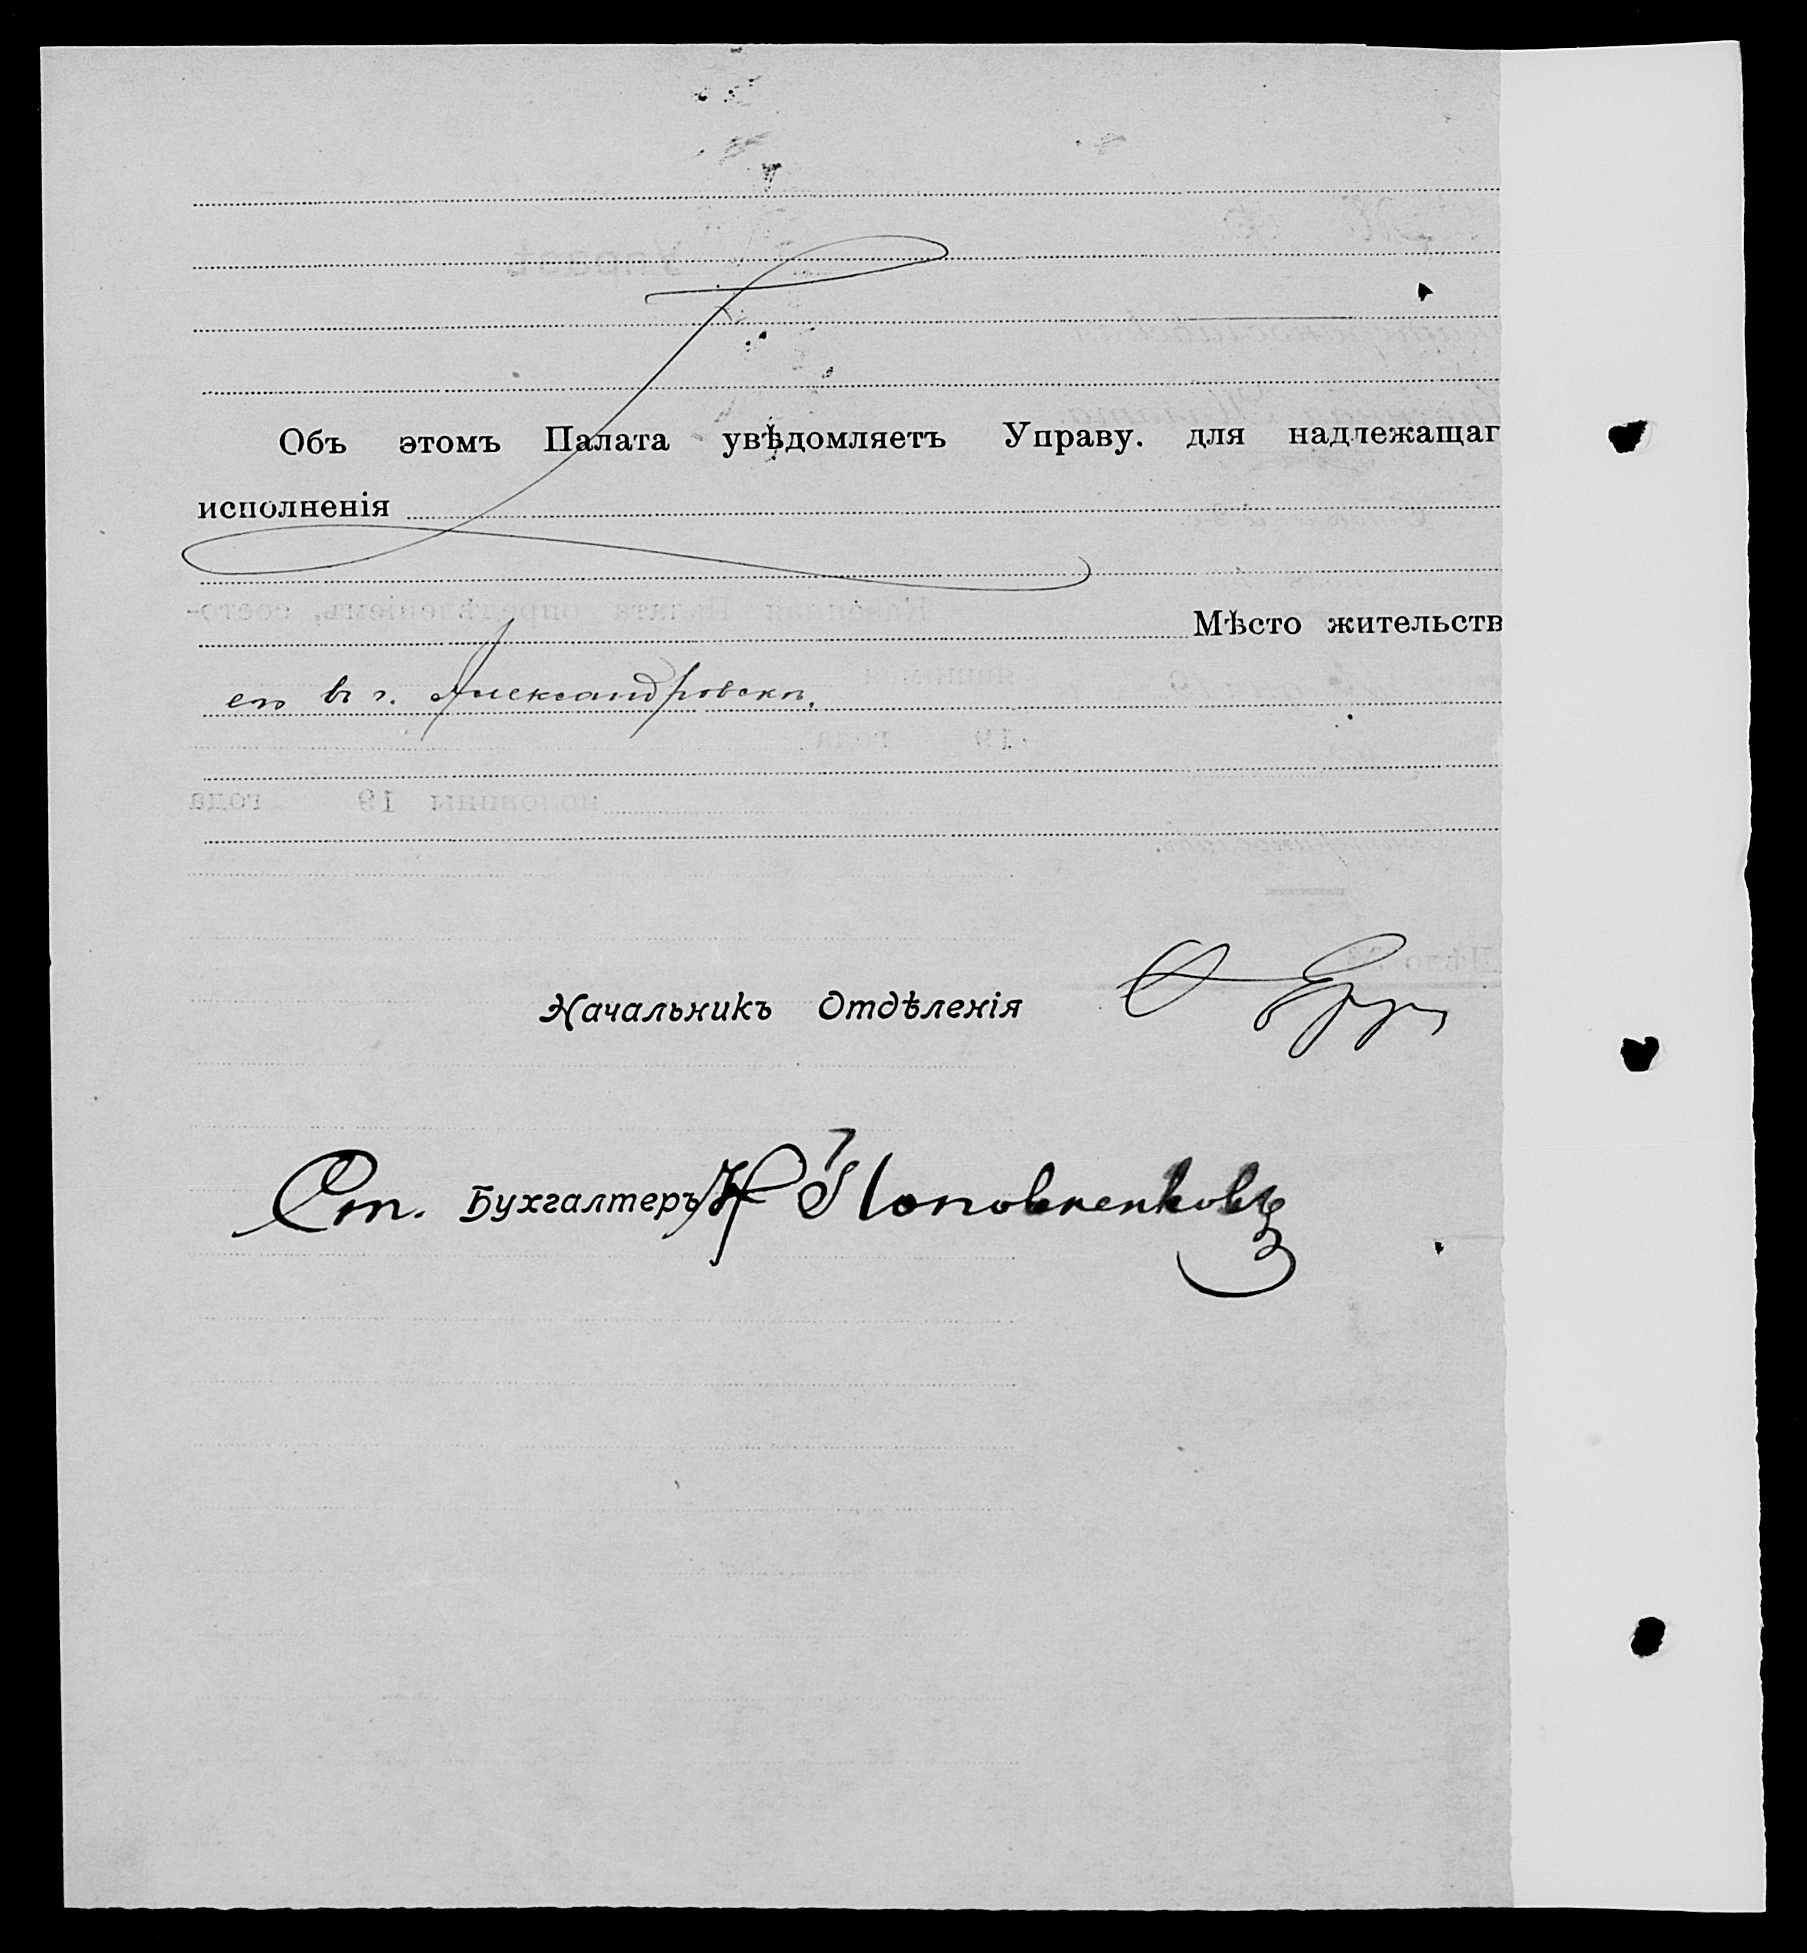 Объ этомъ Палата увѣдомляетъ Управу. для надлежащаг
исполненія
Мѣсто жительств
его въ г. Александровскѣ.
Начальникъ Отдѣленія
Ст. Бухгалтеръ